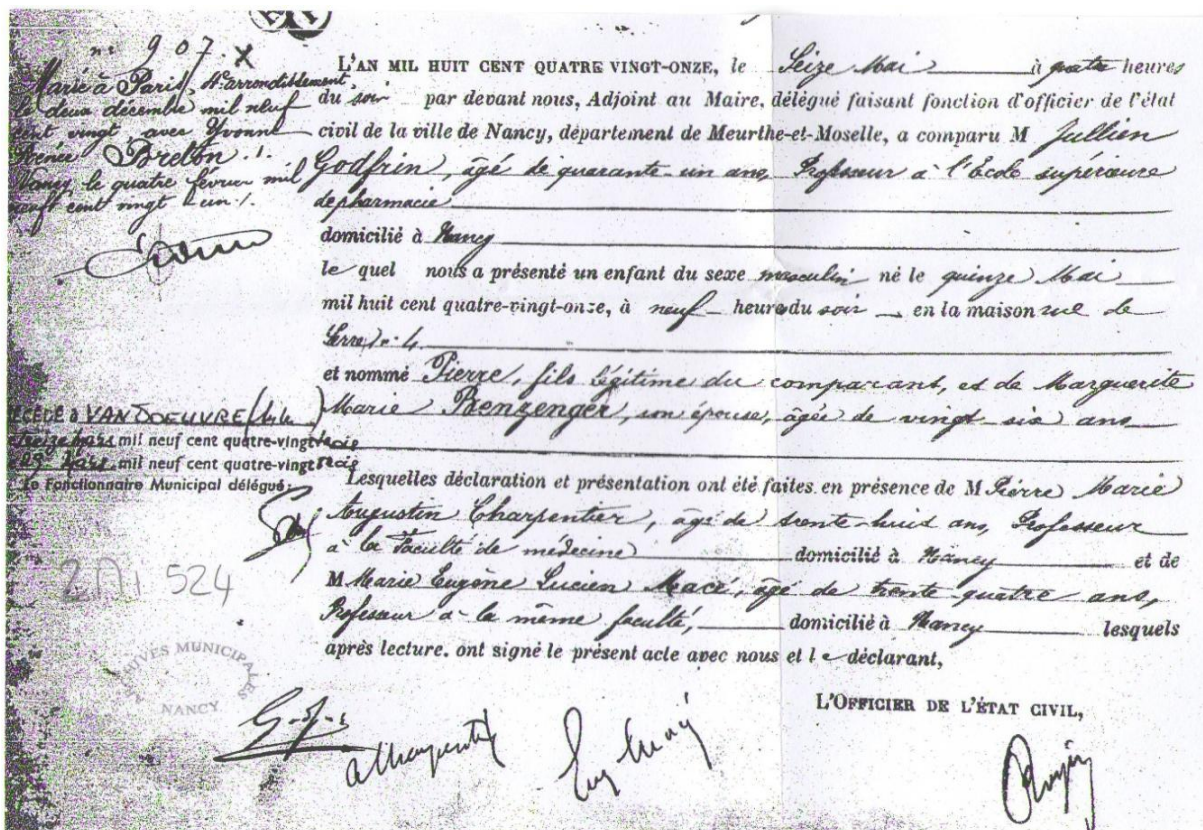 nº 907. X
Marié à Paris, arrondissement,
le deux décembre mil neuf
cent vingt, avec Yvonne
Renée Breton ./.
Nancy, le quatre février mil
neuf cent vingt & un ./.
DÉCÉDÉ à VANDOEUVRE
treize Mars mil neuf cent quatre-vingt
29 Mars mil neuf cent quatre-vingt
Le Fonctionnaire Municipal délégué:
2 Mi 524
ARCHIVES MUNICIPALES
NANCY
L'AN MIL HUIT CENT QUATRE VINGT-ONZE, le Seize Mai à quatre heures
du soir par devant nous, Adjoint au Maire, délégué faisant fonction d'officier de l'état
civil de la ville de Nancy, département de Meurthe-et-Moselle, a comparu M Jullien
Godfrin, âgé de quarante-un ans, Professeur à l'Ecole supérieure
de pharmacie
domicilié à Nancy
le quel nous a présenté un enfant du sexe masculin né le quinze Mai
mil huit cent quatre-vingt-onze, à neuf heures du soir en la maison rue de
Serre nº 4
et nommé Pierre, fils légitime du comparant, et de Marguerite
Marie Renzenger, son épouse, âgée de vingt six ans
Lesquelles déclaration et présentation ont été faites en présence de M Pierre Marie
Augustin Charpentier, âgé de trente-huit ans, Professeur
à la Faculté de médecine domicilié à Nancy et de
M Marie Eugène Lucien Macé, âgé de trente quatre ans,
Professeur à la même faculté, domicilié à Nancy lesquels
après lecture, ont signé le présent acte avec nous et le déclarant,
L'OFFICIER DE L'ÉTAT CIVIL,
A Charpentier
Eug Macé